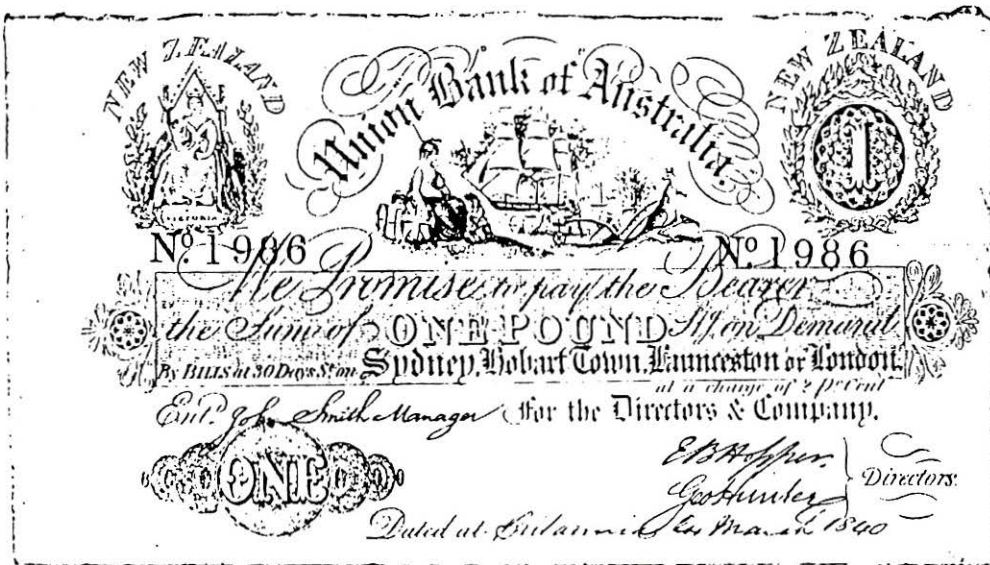 NEW ZEALAND
Union Bank of Australia.
NEW ZEALAND
1
VICTORIA
No. 1986
No. 1986
We Promise to pay the Bearer
the Sum of ONE POUND Stg on Demand
By BILLS at 30 Days St on Sydney, Hobart Town, Launceston or London.
at a charge of 2 Pr Cent
Ent. John Smith Manager For the Directors & Company.
ONE
E B Hopper.
Geo Hunter
Directors.
Dated at Britannia March 1840